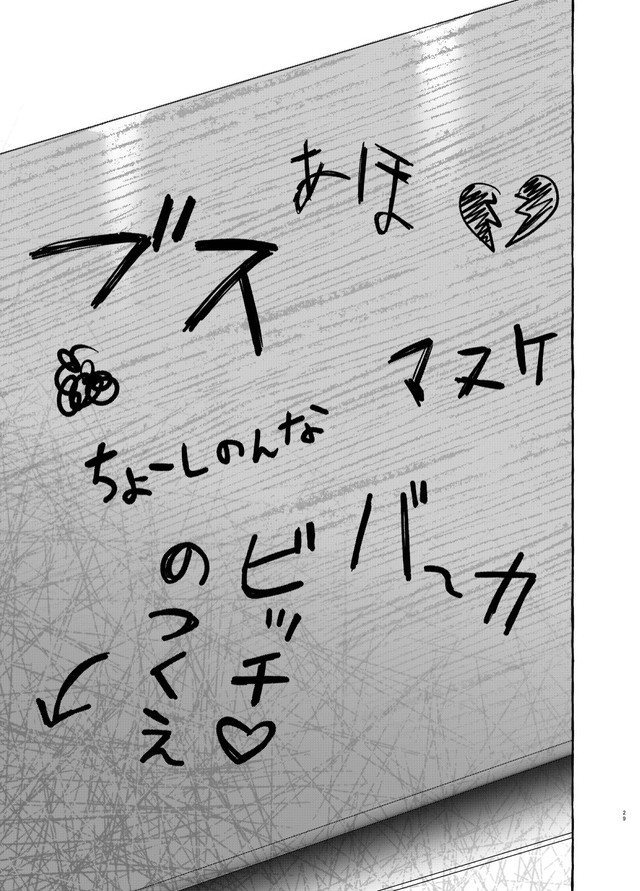 あほ
ブス
マヌケ
ちょーしのんな
バ〜カ
ビッチ♡
のつくえ
29